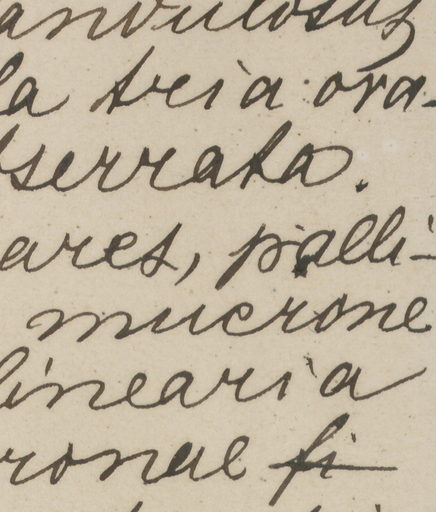 andulosus
la tria ova-
serrata.
ares, palli-
mucrone
linearia
ronae fi